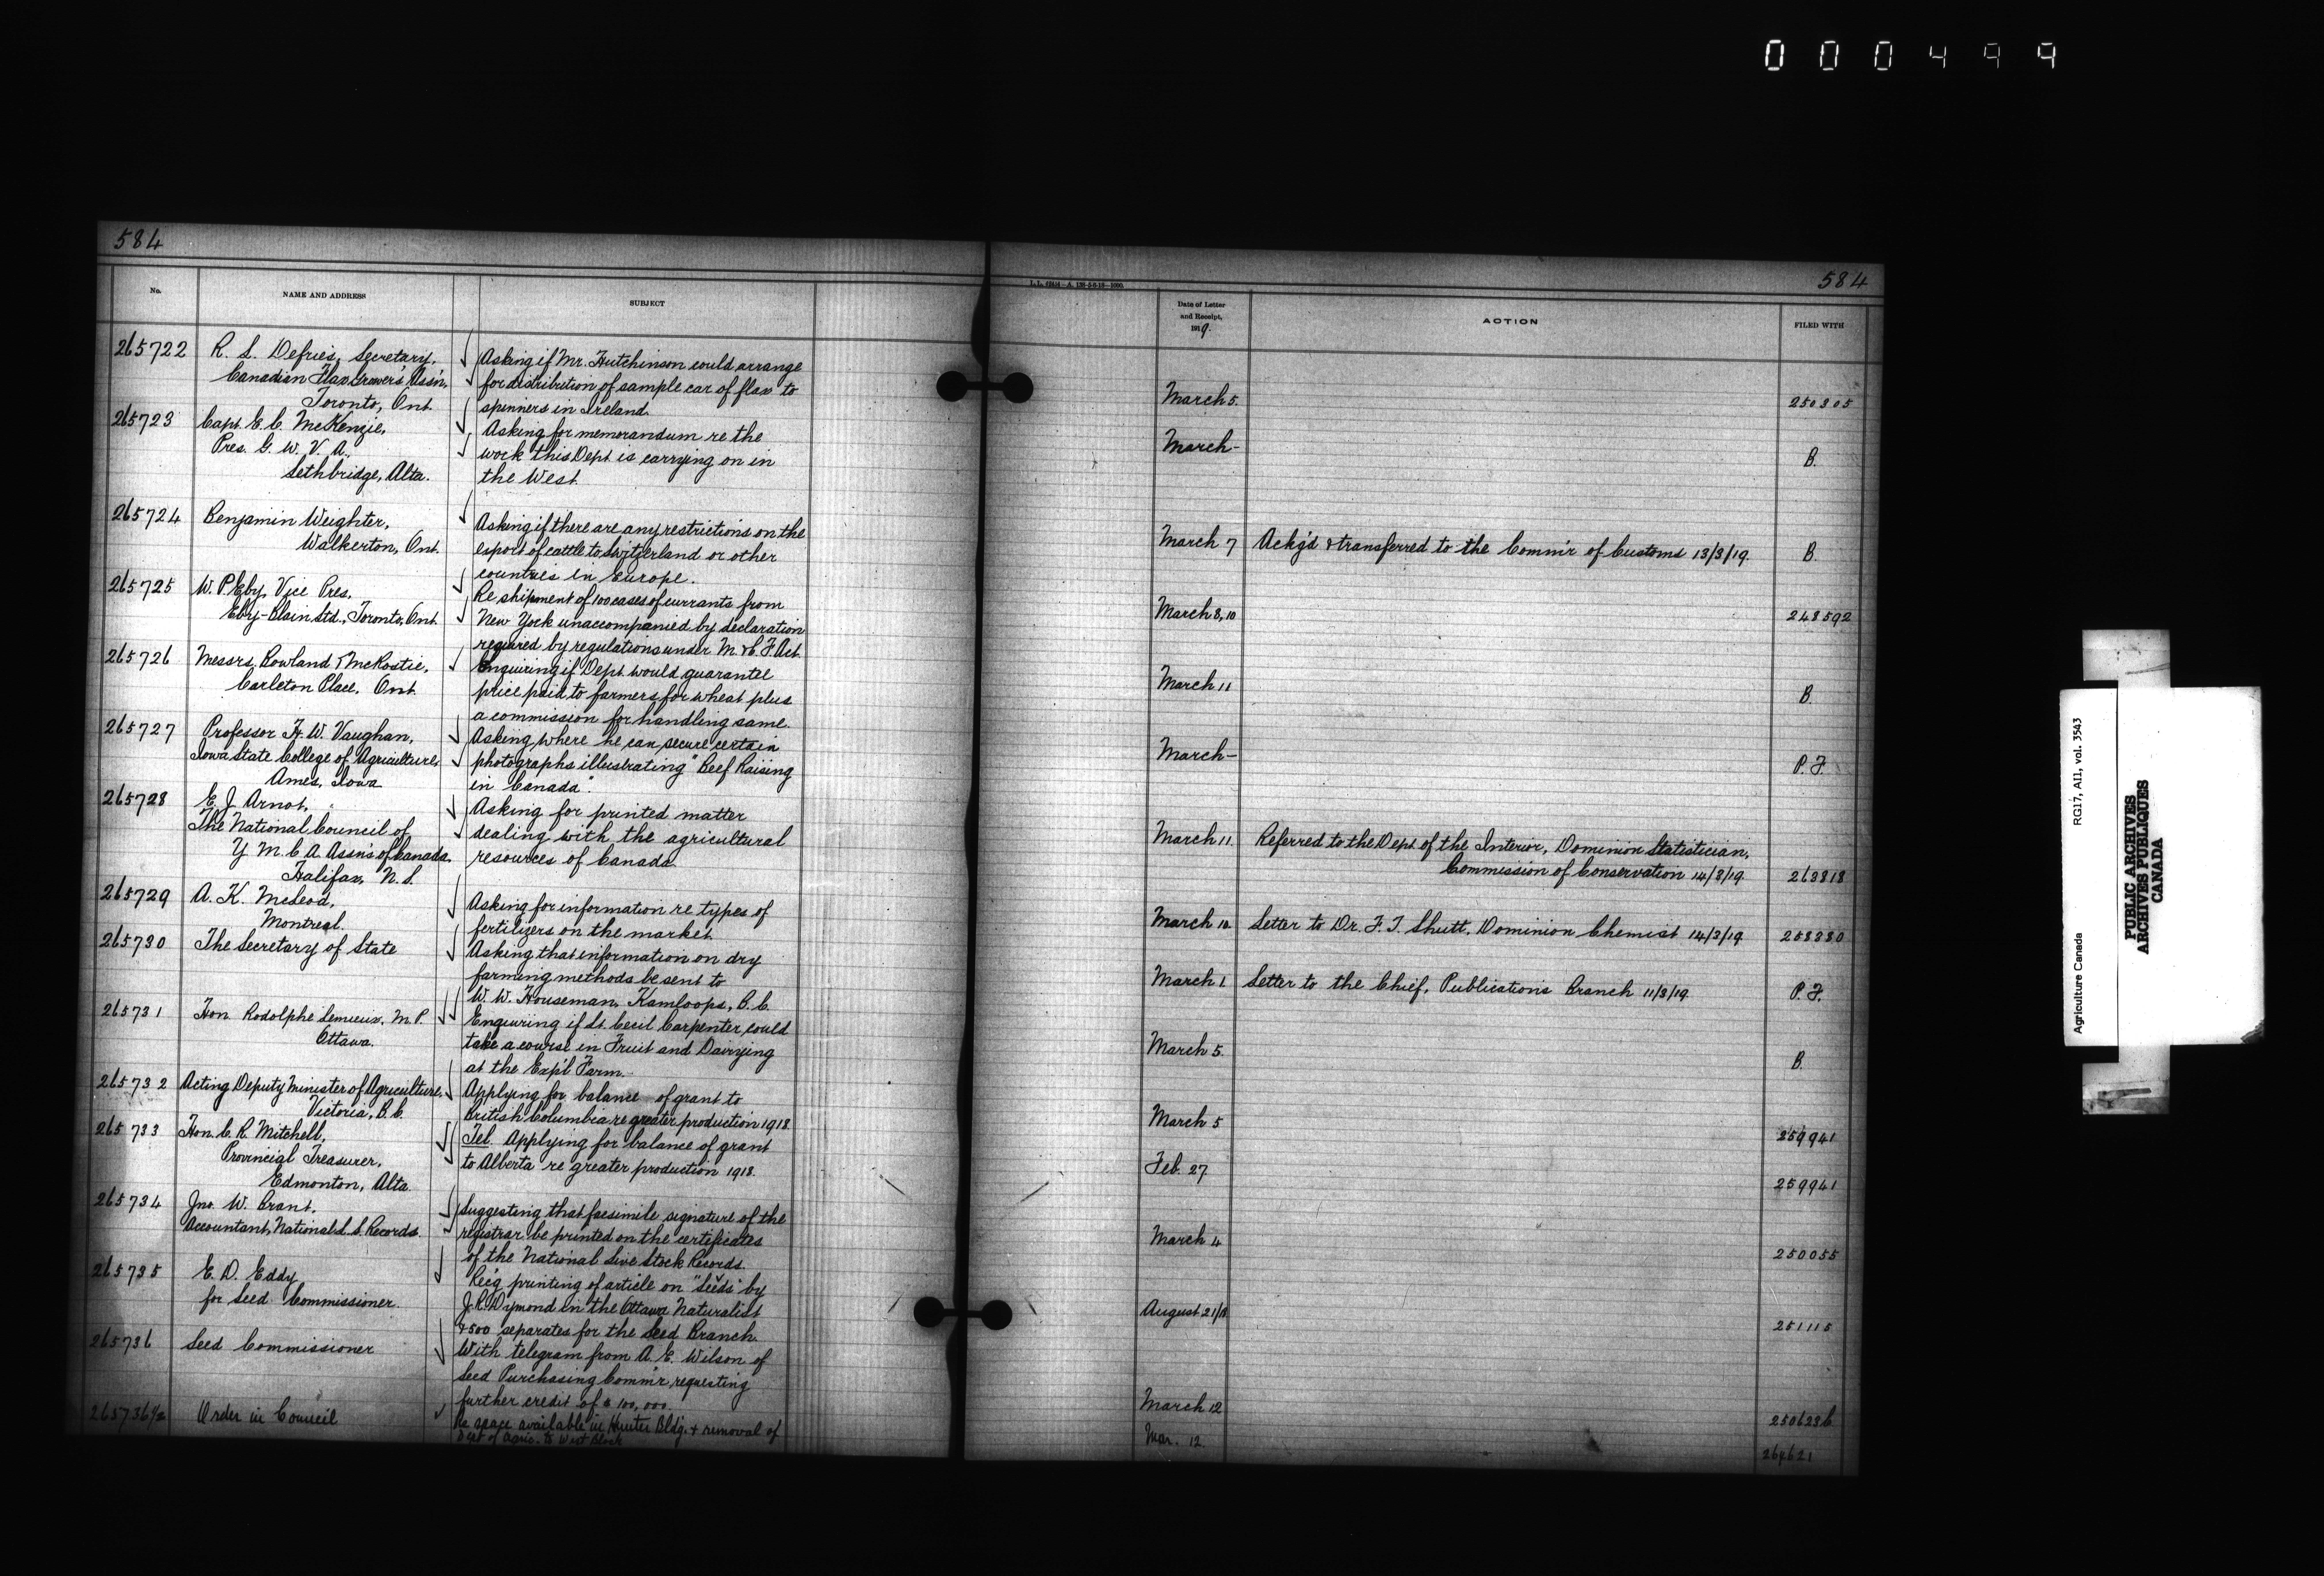 000499
584
No.
NAME AND ADDRESS
SUBJECT
265722
R. S. Defries, Secretary,
Canadian Flax Growers' Ass'n,
Toronto, Ont.
Asking if Mr. Hutchinson could arrange
for distribution of sample car of flax to
spinners in Ireland.
265723
Capt. E. C. McKenzie,
Pres. G. W. V. A.
Lethbridge, Alta.
Asking for memorandum re the
work this Dept. is carrying on in
the West.
265724
Benjamin Weighter,
Walkerton, Ont.
Asking if there are any restrictions on the
export of cattle to Switzerland or other
countries in Europe.
265725
W. P. Eby, Vice Pres.
Eby-Blain Ltd., Toronto, Ont.
Re shipment of 100 cases of currants from
New York unaccompanied by declaration
required by regulations under M. & C. F. Act.
265726
Messrs. Rowland & McRostie,
Carleton Place, Ont.
Enquiring if Dept. would guarantee
price paid to farmers for wheat plus
a commission for handling same.
265727
Professor H. W. Vaughan,
Iowa State College of Agriculture,
Ames, Iowa
Asking where he can secure certain
photographs illustrating "Beef Raising
in Canada".
265728
E. J. Arnot,
The National Council of
Y. M. C. A. Ass'ns of Canada
Halifax, N. S.
Asking for printed matter
dealing with the agricultural
resources of Canada.
265729
A. K. McLeod,
Montreal.
Asking for information re types of
fertilizers on the market.
265730
The Secretary of State
Asking that information on dry
farming methods be sent to
W. W. Houseman, Kamloops, B. C.
265731
Hon. Rodolphe Lemieux, M. P.
Ottawa.
Enquiring if Lt. Cecil Carpenter could
take a course in Fruit and Dairying
at the Exp'l Farm.
265732
Acting Deputy Minister of Agriculture,
Victoria, B. C.
Applying for balance of grant to
British Columbia re greater production 1918.
265733
Hon. C. R. Mitchell,
Provincial Treasurer,
Edmonton, Alta.
Tel. Applying for balance of grant
to Alberta re greater production 1918.
265734
Jno. W. Brant,
Accountant, National L. S. Records.
Suggesting that facsimile signature of the
registrar be printed on the certificates
of the National Live Stock Records.
265735
E. D. Eddy
for Seed Commissioner.
Re'g printing of article on "Seeds" by
J. R. Dymond in the Ottawa Naturalist
& 500 separates for the Seed Branch.
265736
Seed Commissioner
With telegram from A. E. Wilson of
Seed Purchasing Comm'r, requesting
further credit of $100,000.
265736½
Order in Council
Re space available in Hunter Bldg. & removal of
Dept of Agric. to West Block
584
Date of Letter
and Receipt,
1919.
ACTION
FILED WITH
March 5.
250305
March -
B.
March 7
Ackg'd & transferred to the Comm'r of Customs 13/3/19.
B.
March 8, 10
248592
March 11
B.
March -
P. F.
March 11.
Referred to the Dept. of the Interior, Dominion Statistician,
Commission of Conservation 14/3/19
263818
March 10.
Letter to Dr. F. T. Shutt, Dominion Chemist 14/3/19
258380
March 1.
Letter to the Chief, Publications Branch 11/3/19.
P. F.
March 5.
B.
March 5
259941
Feb. 27
259941
March 4
250055
August 21/18
251115
March 12
250623b
Mar. 12.
Agriculture Canada
RG17, AII1, vol. 3543
PUBLIC ARCHIVES
ARCHIVES PUBLIQUES
CANADA